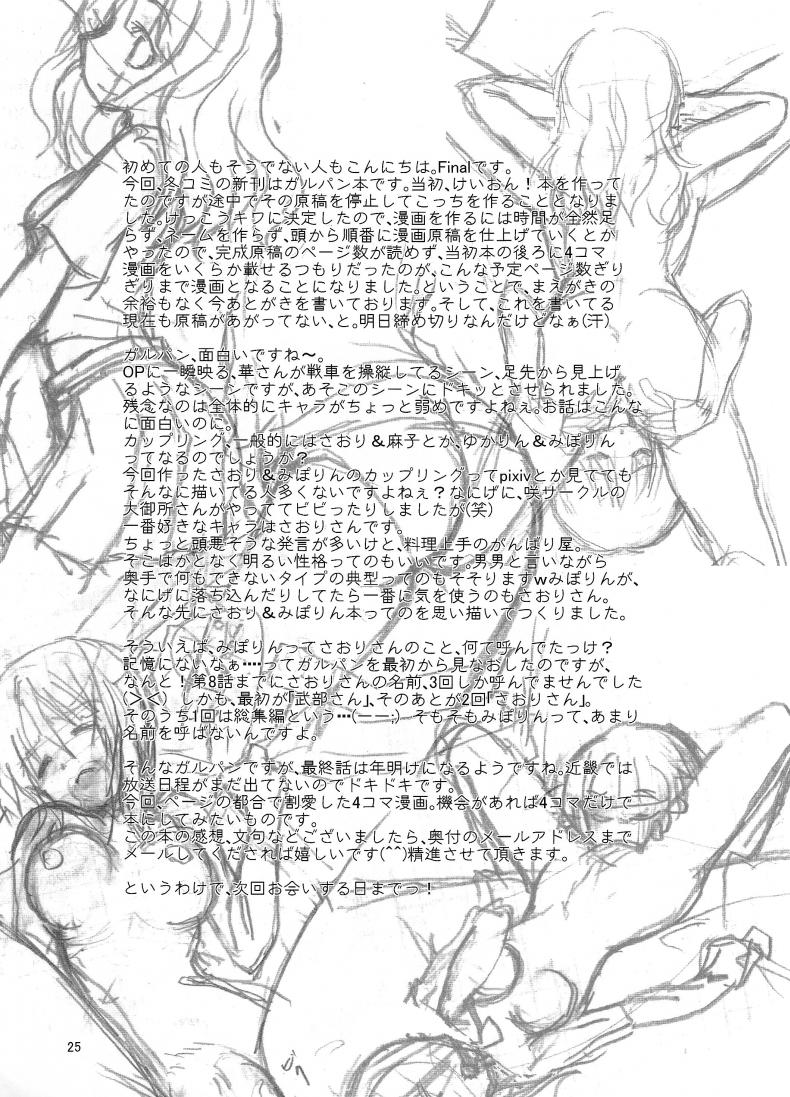 初めての人もそうでない人もこんにちは。Finalです。
今回、冬コミの新刊はガルパン本です。当初、けいおん！本を作って
たのですが途中でその原稿を停止してこっちを作ることとなりま
した。けっこうキワに決定したので、漫画を作るには時間が全然足
らず、ネームを作らず、頭から順番に漫画原稿を仕上げていくとか
やったので、完成原稿のページ数が読めず、当初本の後ろに4コマ
漫画をいくらか載せるつもりだったのが、こんな予定ページ数ぎり
ぎりまで漫画となることになりました。ということで、まえがきの
余裕もなく今あとがきを書いております。そして、これを書いてる
現在も原稿があがってない、と。明日締め切りなんだけどなぁ(汗)
ガルパン、面白いですね～。
OPに一瞬映る、華さんが戦車を操縦してるシーン、足先から見上げ
るようなシーンですが、あそこのシーンにドキッとさせられました。
残念なのは全体的にキャラがちょっと弱めですよねぇ。お話はこんな
に面白いのに。
カップリング、一般的にはさおり＆麻子とか、ゆかりん＆みぽりん
ってなるのでしょうか？
今回作ったさおり＆みぽりんのカップリングってpixivとか見てても
そんなに描いてる人多くないですよねぇ？なにげに、咲サークルの
大御所さんがやっててビビったりしましたが(笑)
一番好きなキャラはさおりさんです。
ちょっと頭悪そうな発言が多いけど、料理上手のがんばり屋。
そこはかとなく明るい性格ってのもいいです。男男と言いながら
奥手で何もできないタイプの典型ってのもそそりますwみぽりんが、
なにげに落ち込んだりしてたら一番に気を使うのもさおりさん。
そんな先にさおり＆みぽりん本ってのを思い描いてつくりました。
そういえば、みぽりんってさおりさんのこと、何て呼んでたっけ？
記憶にないなぁ‥‥ってガルパンを最初から見なおしたのですが、
なんと！第8話までにさおりさんの名前、3回しか呼んでませんでした
(＞＜) しかも、最初が「武部さん」、そのあとが2回「さおりさん」。
そのうち1回は総集編という…(ーー;) そもそもみぽりんって、あまり
名前を呼ばないんですよ。
そんなガルパンですが、最終話は年明けになるようですね。近畿では
放送日程がまだ出てないのでドキドキです。
今回、ページの都合で割愛した4コマ漫画。機会があれば4コマだけで
本にしてみたいものです。
この本の感想、文句などございましたら、奥付のメールアドレスまで
メールしてくだされば嬉しいです(^^)精進させて頂きます。
というわけで、次回お会いする日までっ！
25